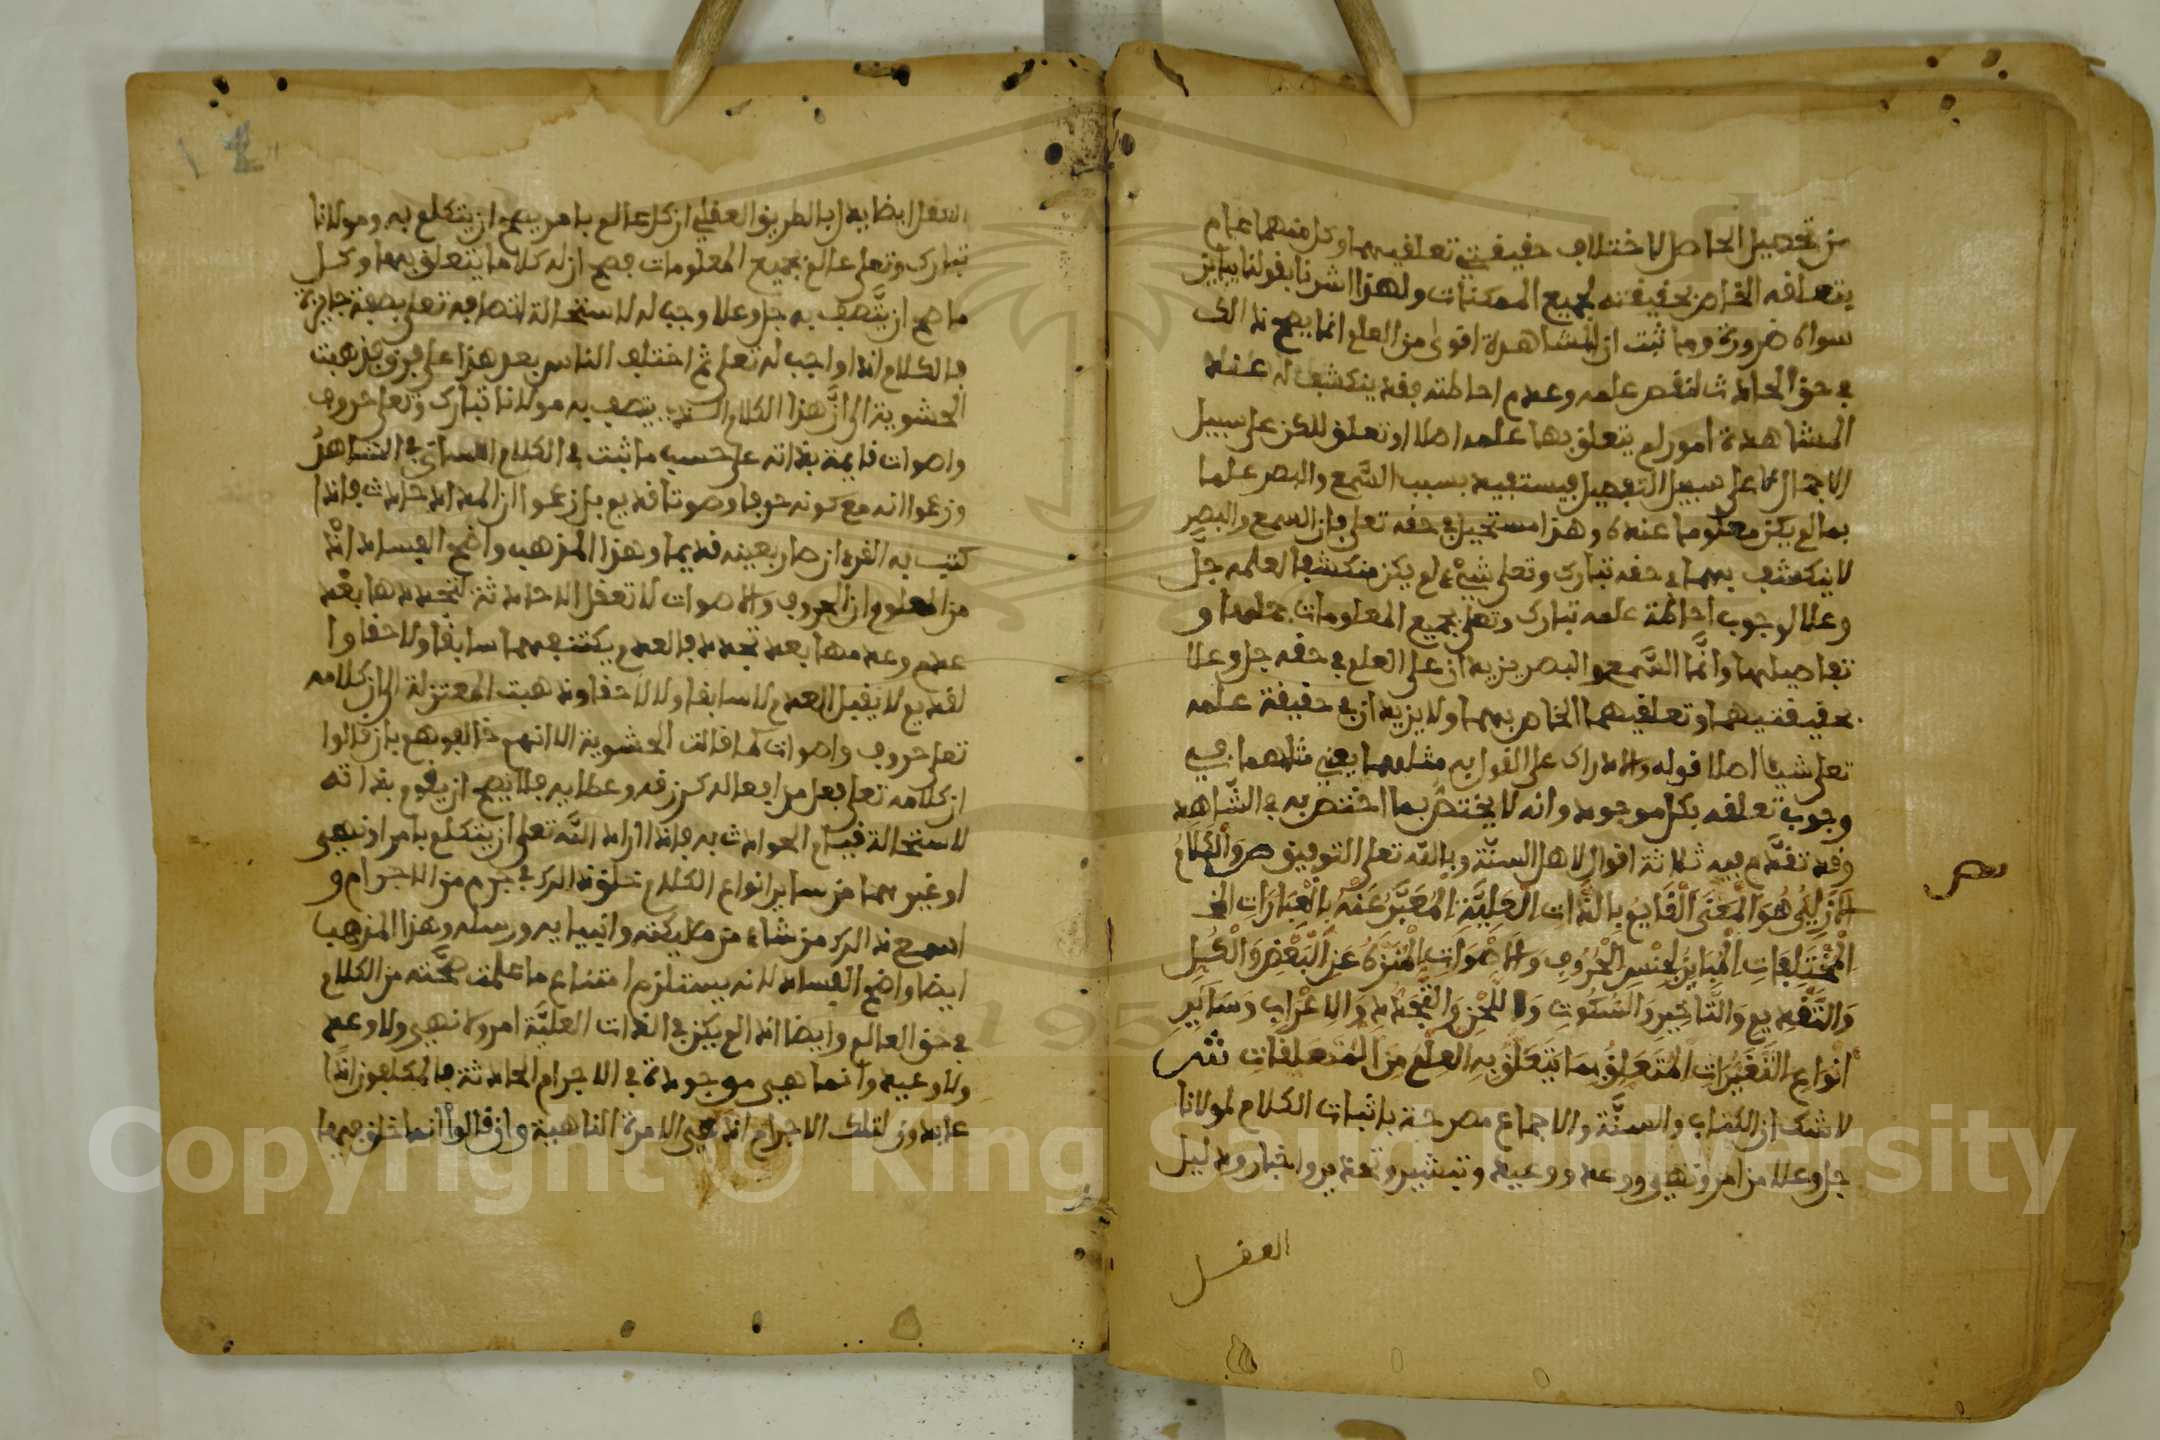 من تحصيل الحاصل لاختلاف حقيقتي تعلقيهما وكل منهما عام
يتعلقه الخاص بحقيقته لجميع الممكنات ولهذا اشرنا بقولنا يباين
سواه ضرورة وما ثبت ان المشاهدة اقوى من العلم انما يصح ذالك
في حق الحادث لنقص علمه وعدم احاطته فقد ينكشف له عند
المشاهدة امور لم يتعلق بها علمه اصلا او تعلق لاكن على سبيل
الاجمال لا على سبيل التفصيل فيستفيد بسبب السَّمع والبصر علما
بما لم يكن معلوما عنده وهذا مستحيل في حقه تعلى فان السمع والبصر
لا ينكشف بهما في حقه تبارك وتعلى شيْء لم يكن منكشفا لعلمه جل
وعلا لوجوب احاطة علمه تبارك وتعلى بجميع المعلومات جملها و
تفاصيلها وانَّما السَّمع والبصر يزيدان على العلم في حقه جل وعلا
بحقيقتيهما وتعلقيهما الخاص بهما ولا يزيدان في حقيقة علمه
تعلى شيئا اصلا قوله والادراك على القول به مثلهما يعني مثلهما في
وجوب تعلقه بكل موجود وانه لا يختصّ بما اختص به في الشّاهد
وقد تقدَّم فيه ثلاثة اقوال لاهل السنّة وبالله تعلى التوفيق ص وَالْكَلَامُ
ص
الْاَزَلِيُّ هُوَ الْمَعْنَى الْقَايِمُ بِالذَّاتِ الْعَلِيَّةِ الْمُعَبَّرُ عَنْهُ بِالْعِبَارَاتِ
الْمُخْتَلِفَاتِ الْمُبَايِنُ لِجِنْسِ الْحُرُوفِ وَالْاَصْوَاتِ الْمُنَزَّهُ عَنِ الْبَعْضِ وَالْكُلِّ
وَالتَّقْدِيمِ وَالتَّاخِيرِ وَالسُّكُوتِ وَاللَّحْنِ وَالتَّجَدُّدِ وَالِاعْرَابِ وَسَايِرِ
اَنْوَاعِ التَّغَيُّرَاتِ الْمُتَعَلِّقُ بِمَا يَتَعَلَّقُ بِهِ الْعِلْمُ مِنَ الْمُتَعَلَّقَاتِ ش
لا شك ان الكتاب والسنَّة والاجماع مصرحة باثبات الكلام لمولانا
جل وعلا من امر ونهي ووعد ووعيد وتبشير وتحذير واخبار ودليل
العقل
١٤
العقل ايضا يدل بالطريق العقلي ان كل عالم بامر يصح ان يتكلم به ومولانا
تبارك وتعلى عالم بجميع المعلومات فصح ان له كلاما يتعلق بها وكل
ما صح ان يتَّصف به جل وعلا وجب له لاستحالة اتصافه تعلى بصفة جايزة
فالكلام اذا واجب له تعلى ثم اختلف الناس بعد هذا على فرق فذهبت
الحشوية الى انَّ هذا الكلام الذي يتصف به مولانا تبارك وتعلى حروف
واصوات قايمة بذاته على حسب ما ثبت في الكلام اللساني في الشاهد
وزعموا انه مع كونه حروفا وصوتا قديم بل زعموا ان المداد حادث فاذا
كتب به القرءان صار بعينه قديما وهذا المذهب واضح الفساد اذْ
من المعلوم ان الحروف والاصوات لا تعقل الا حادثة لتجددها بعْد
عدم وعدمها بعد تجدد فالعدم يكتنفهما سابقا ولاحقا وا
لقديم لا يقبل العدم لا سابقا ولا لاحقا وذهبت المعتزلة الى ان كلامه
تعلى حروف واصوات كما قالت الحشوية الا انهم خالفوهم بان قالوا
ان كلامه تعلى فعل من افعاله كرزقه وعطايه فلا يصح ان يقوم بذاته
لاستحالة قيام الحوادث به فاذا اراد اللَّه تعلى ان يتكلم بامر او نهي
او غيرهما من ساير انواع الكلام خلق ذالك في جرم من الاجرام و
اسمع ذالك من شاء من مليكته وانبيايه ورسله وهذا المذهب
ايضا واضح الفساد لانه يستلزم امتناع ما علمت صحَّته من الكلام
في حق العالم وايضا اذا لم يكن في الذات العليَّة امر ولا نهي ولا وعد
ولا وعيد وانما هي موجودة في الاجرام الحادثة فالمكلفون اذًا
عابدون لتلك الاجرام اذ هي الامرة الناهية وان قالوا انما خلق فيها
Copyright © King Saud University
1957